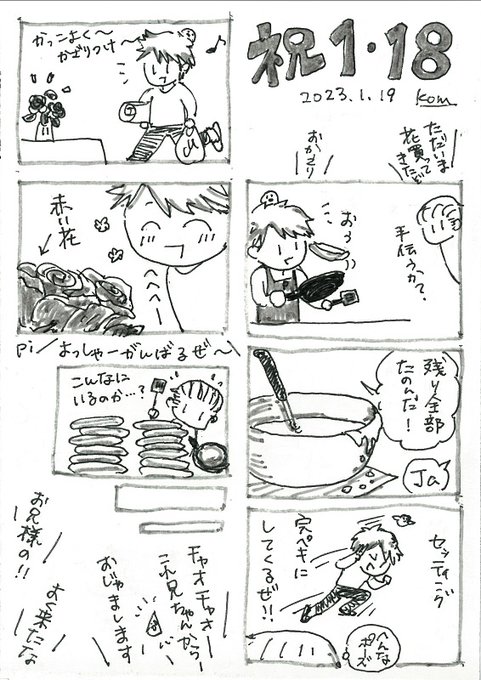 祝1・18
2023.1.19 kom
ただいま
花買って
きたぞ
おかえり
おう
手伝うか?
残り全部
たのんだ!
Ja
セッティング
完ペキに
してくるぜ!!
へんな
ポーズ
かっこよく〜
かざりつけ〜
赤い花
へへへー
pi/よっしゃーがんばるぜ〜\
こんなに
いるのか…?
チャオチャオ
これ兄ちゃんからー
おじゃまします
よく来たな
お兄様の!!